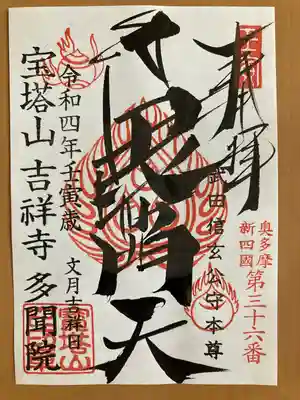 奉拝
奥多摩
新四國
第三十六番
武田信玄公守本尊
毘沙門天
令和四年壬寅歳
文月吉祥日
宝塔山吉祥寺多聞院
宝塔山